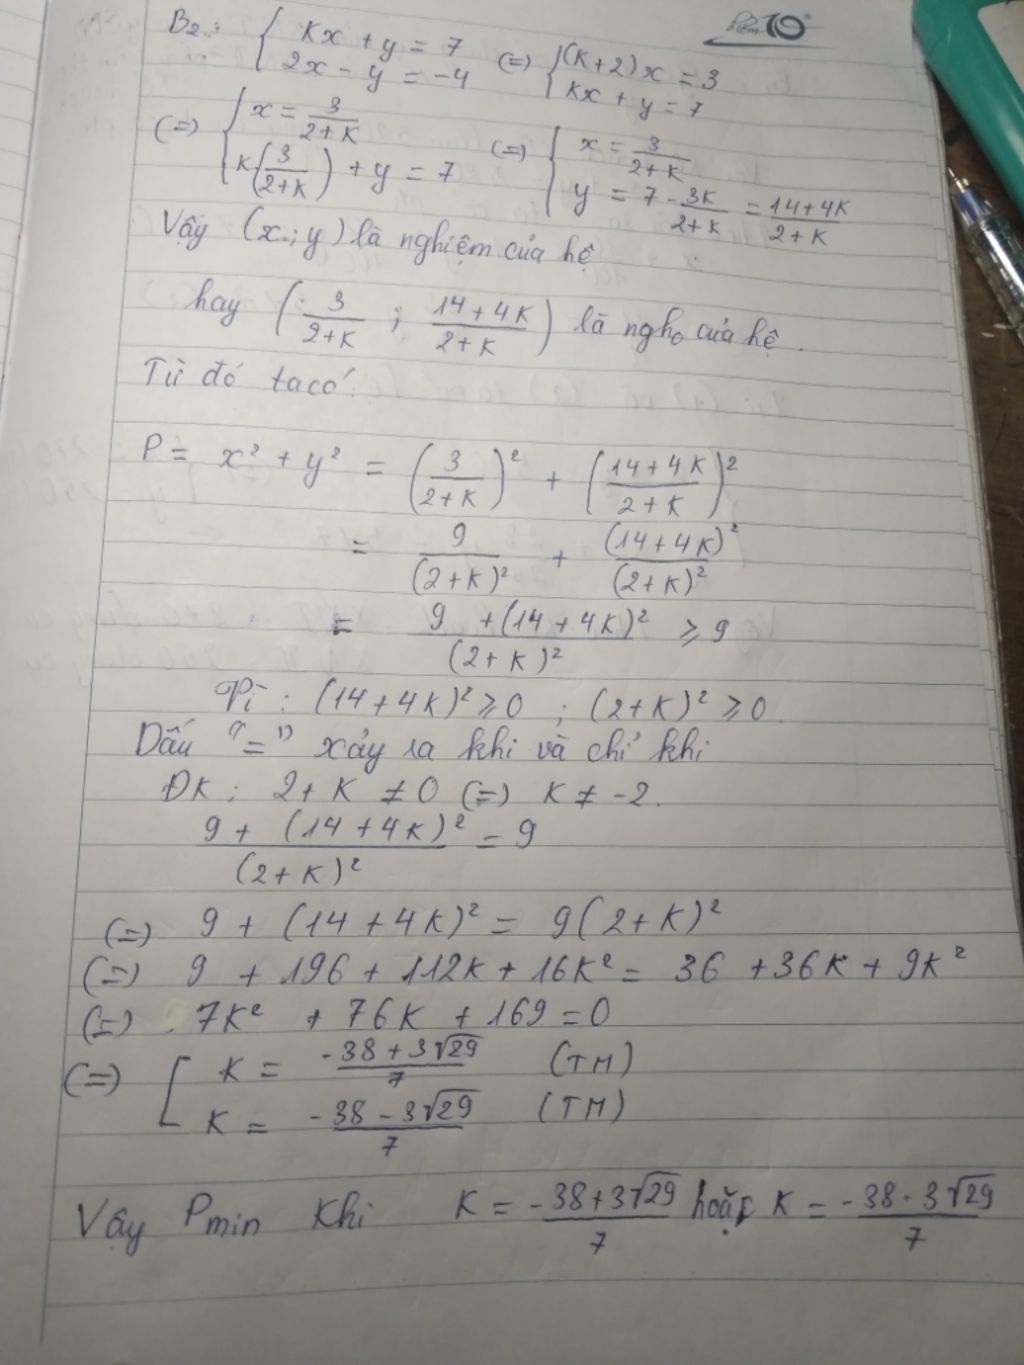 Điểm 10
B2: { Kx + y = 7 (=) { (K+2)x = 3
2x - y = -4 Kx + y = 7
(=) { x = 3/(2+K) (=) { x = 3/(2+K)
K(3/(2+K)) + y = 7 y = 7 - 3K/(2+K) = (14+4K)/(2+K)
Vậy (x; y) là nghiệm của hệ
hay (3/(2+K) ; (14+4K)/(2+K)) là ngho của hệ.
Từ đó ta có:
P = x² + y² = (3/(2+K))² + ((14+4K)/(2+K))²
= 9/(2+K)² + (14+4K)²/(2+K)²
= (9 + (14+4K)²)/(2+K)² ⩾ 9
Vì: (14+4K)² ⩾ 0 ; (2+K)² ⩾ 0.
Dấu "=" xảy ra khi và chỉ khi
ĐK: 2+K ≠ 0 (=) K ≠ -2.
(9 + (14+4K)²)/(2+K)² = 9
(=) 9 + (14+4K)² = 9(2+K)²
(=) 9 + 196 + 112K + 16K² = 36 + 36K + 9K²
(=) 7K² + 76K + 169 = 0
(=) [ K = (-38+3√29)/7 (TM)
K = (-38-3√29)/7 (TM)
Vậy Pmin Khi K = (-38+3√29)/7 hoặc K = (-38-3√29)/7